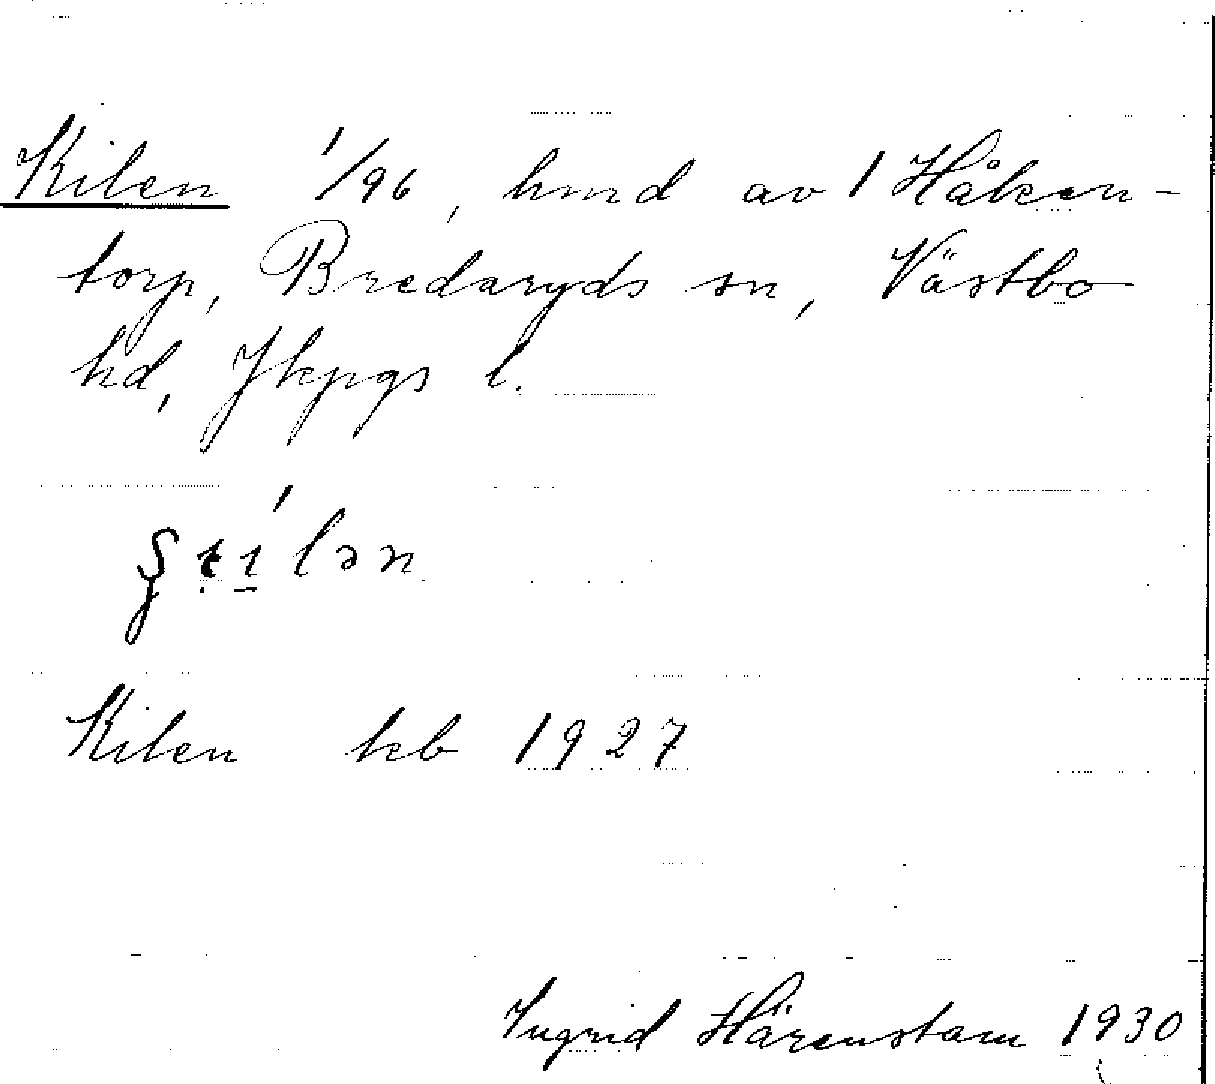 Kilen 1/96, hmd av 1 Håken-
torp, Bredaryds sn, Västbo
hd, Jkpgs l.
Kilen kb 1927
Ingrid Härenstam 1930